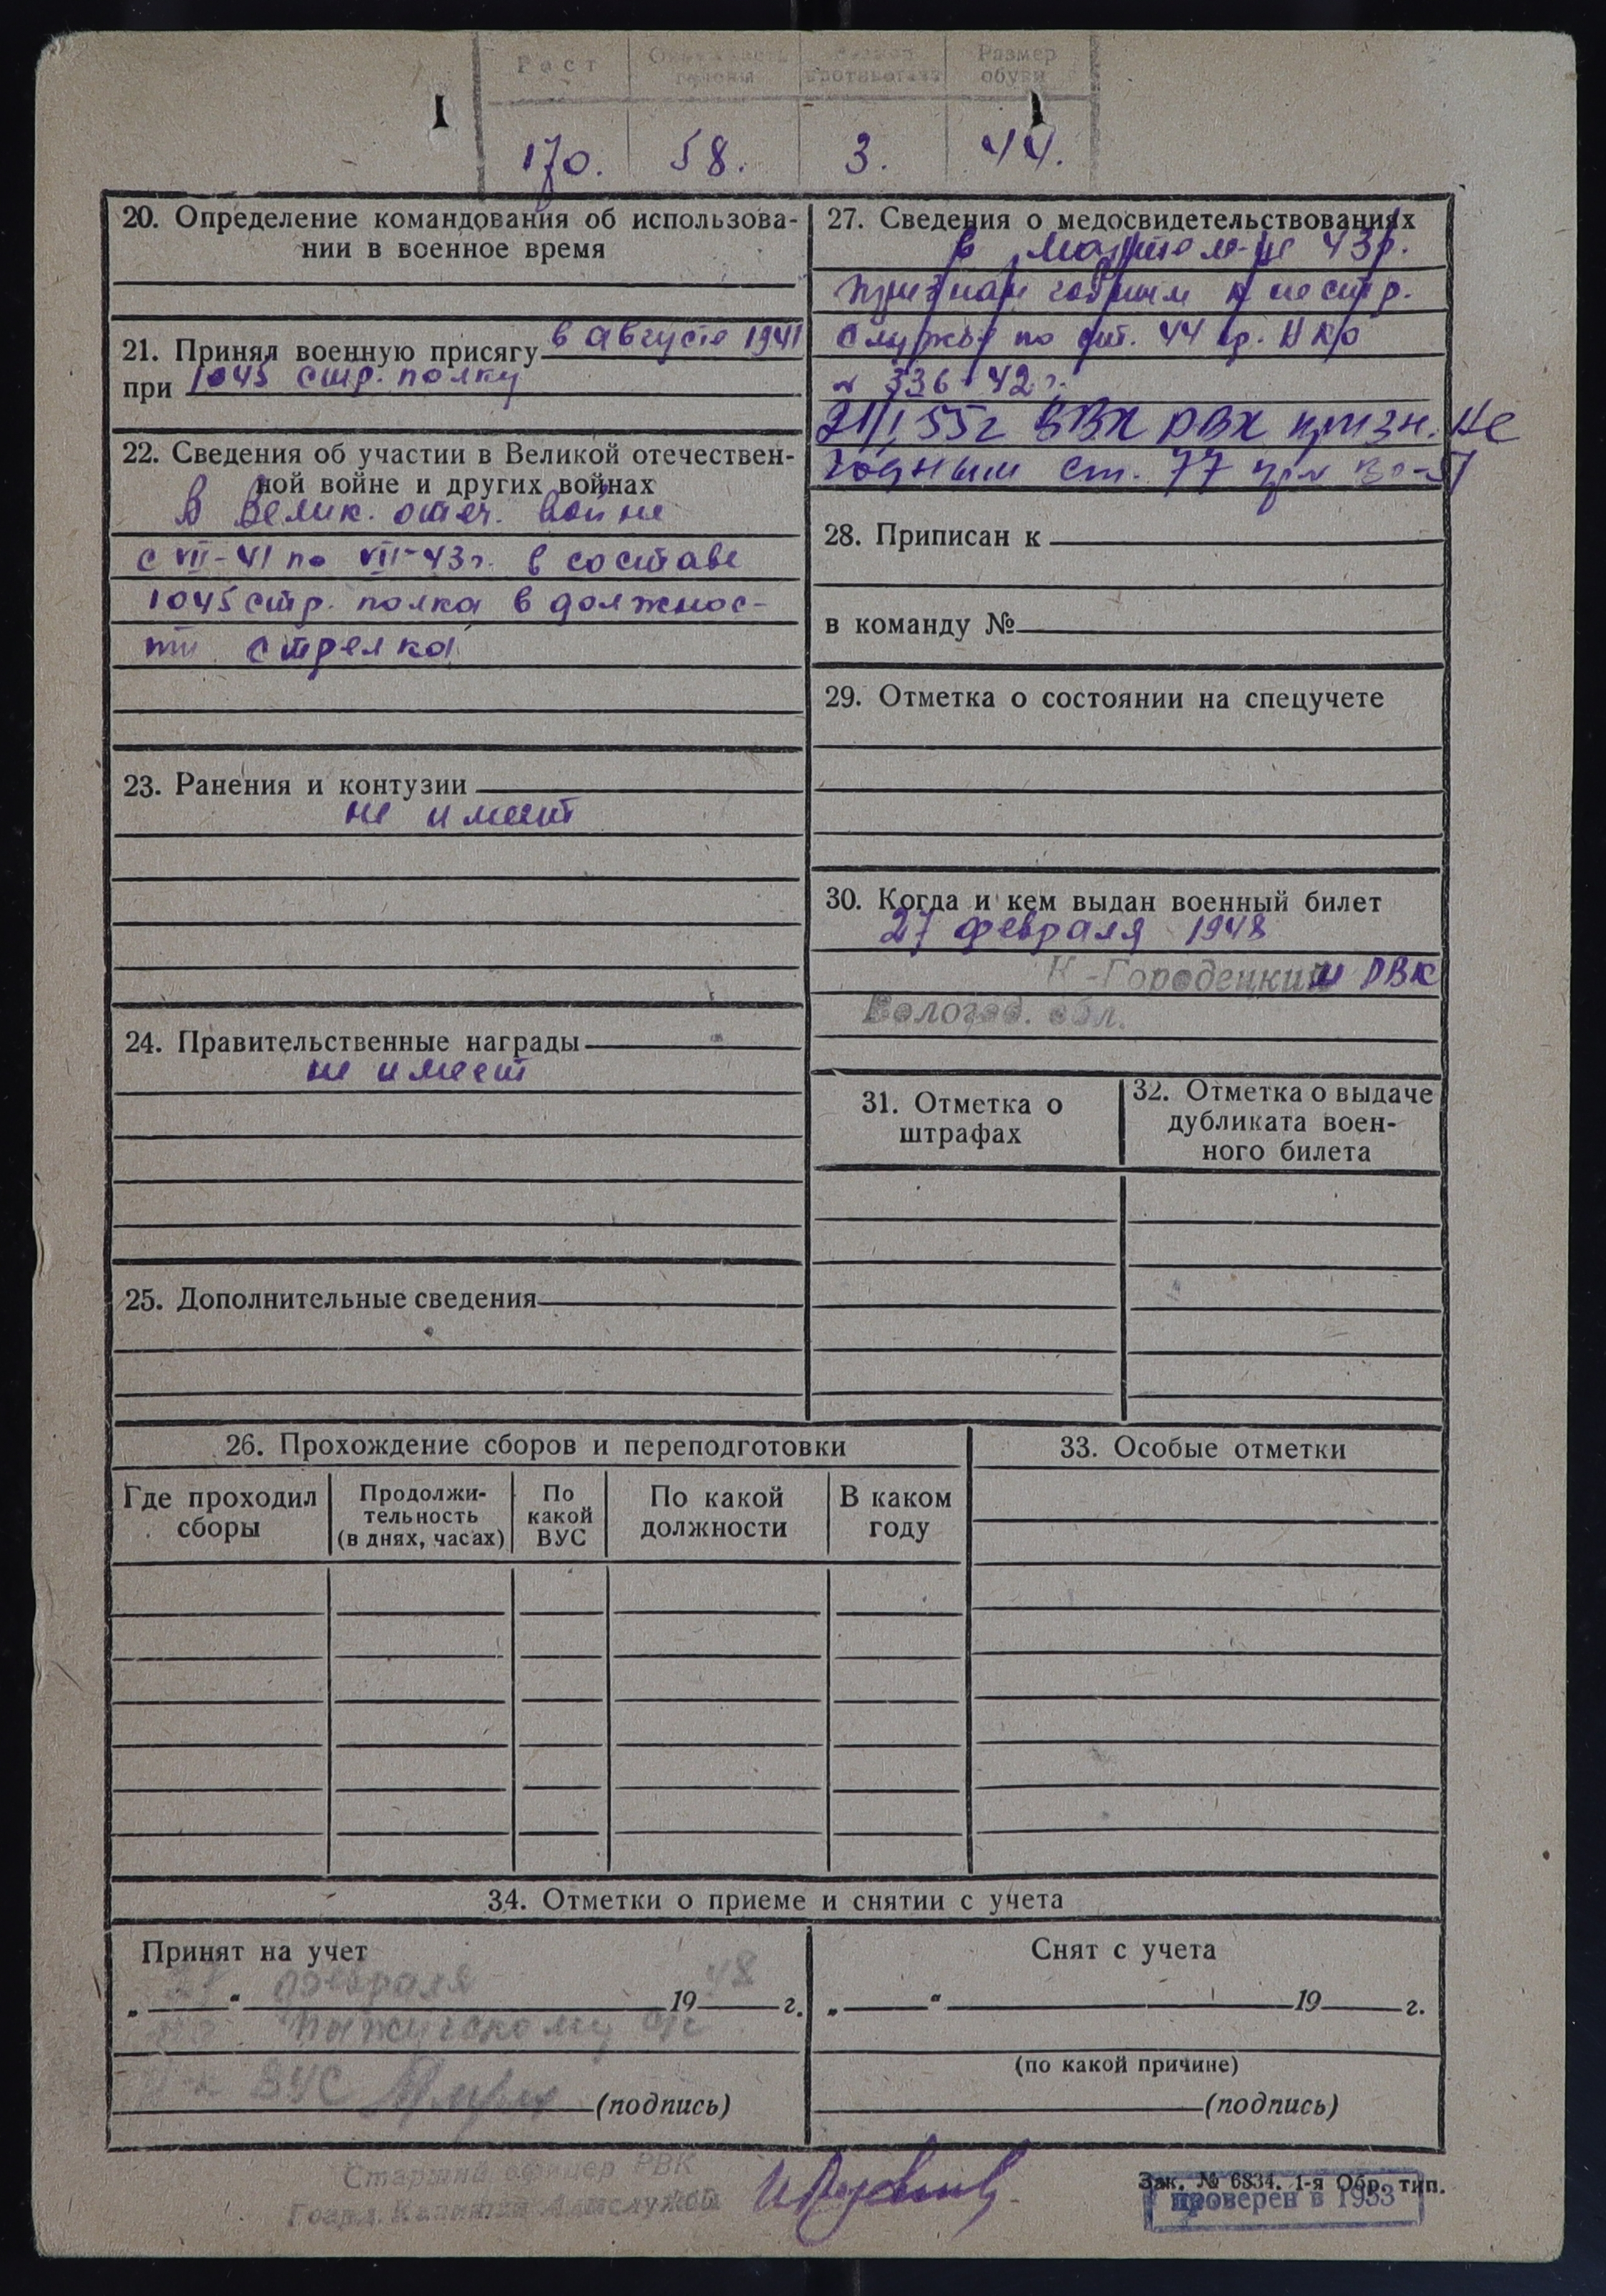 Рост Размер обуви
170. 58. 3. 44.
20. Определение командования об использова-
нии в военное время
21. Принял военную присягу в августе 1941
при 1045 стр. полку
22. Сведения об участии в Великой отечествен-
ной войне и других войнах
В Велик. отеч. войне
с VII-41 по VII-43г. в составе
1045 стр. полка в должнос-
ти стрелка
23. Ранения и контузии
не имеет
24. Правительственные награды
не имеет
25. Дополнительные сведения
27. Сведения о медосвидетельствованиях
в 43г.
признан годным к нестр.
службе по 44 пр. НКО
№ 336-42г.
21/I 55г ВВК РВК призн. не
годным ст. 77 пр.
28. Приписан к
в команду №
29. Отметка о состоянии на спецучете
30. Когда и кем выдан военный билет
27 февраля 1948
К-Городецким РВК
Вологод. обл.
31. Отметка о
штрафах
32. Отметка о выдаче
дубликата воен-
ного билета
26. Прохождение сборов и переподготовки
Где проходил
сборы
Продолжи-
тельность
(в днях, часах)
По
какой
ВУС
По какой
должности
В каком
году
33. Особые отметки
34. Отметки о приеме и снятии с учета
Принят на учет
„27“ февраля 1948 г.
по с/с
ВУС (подпись)
Снят с учета
„ “ 19 г.
(по какой причине)
(подпись)
Старший офицер РВК
Гвард. Капитан
Зак. № 6834. 1-я Обр. тип.
проверен в 1953